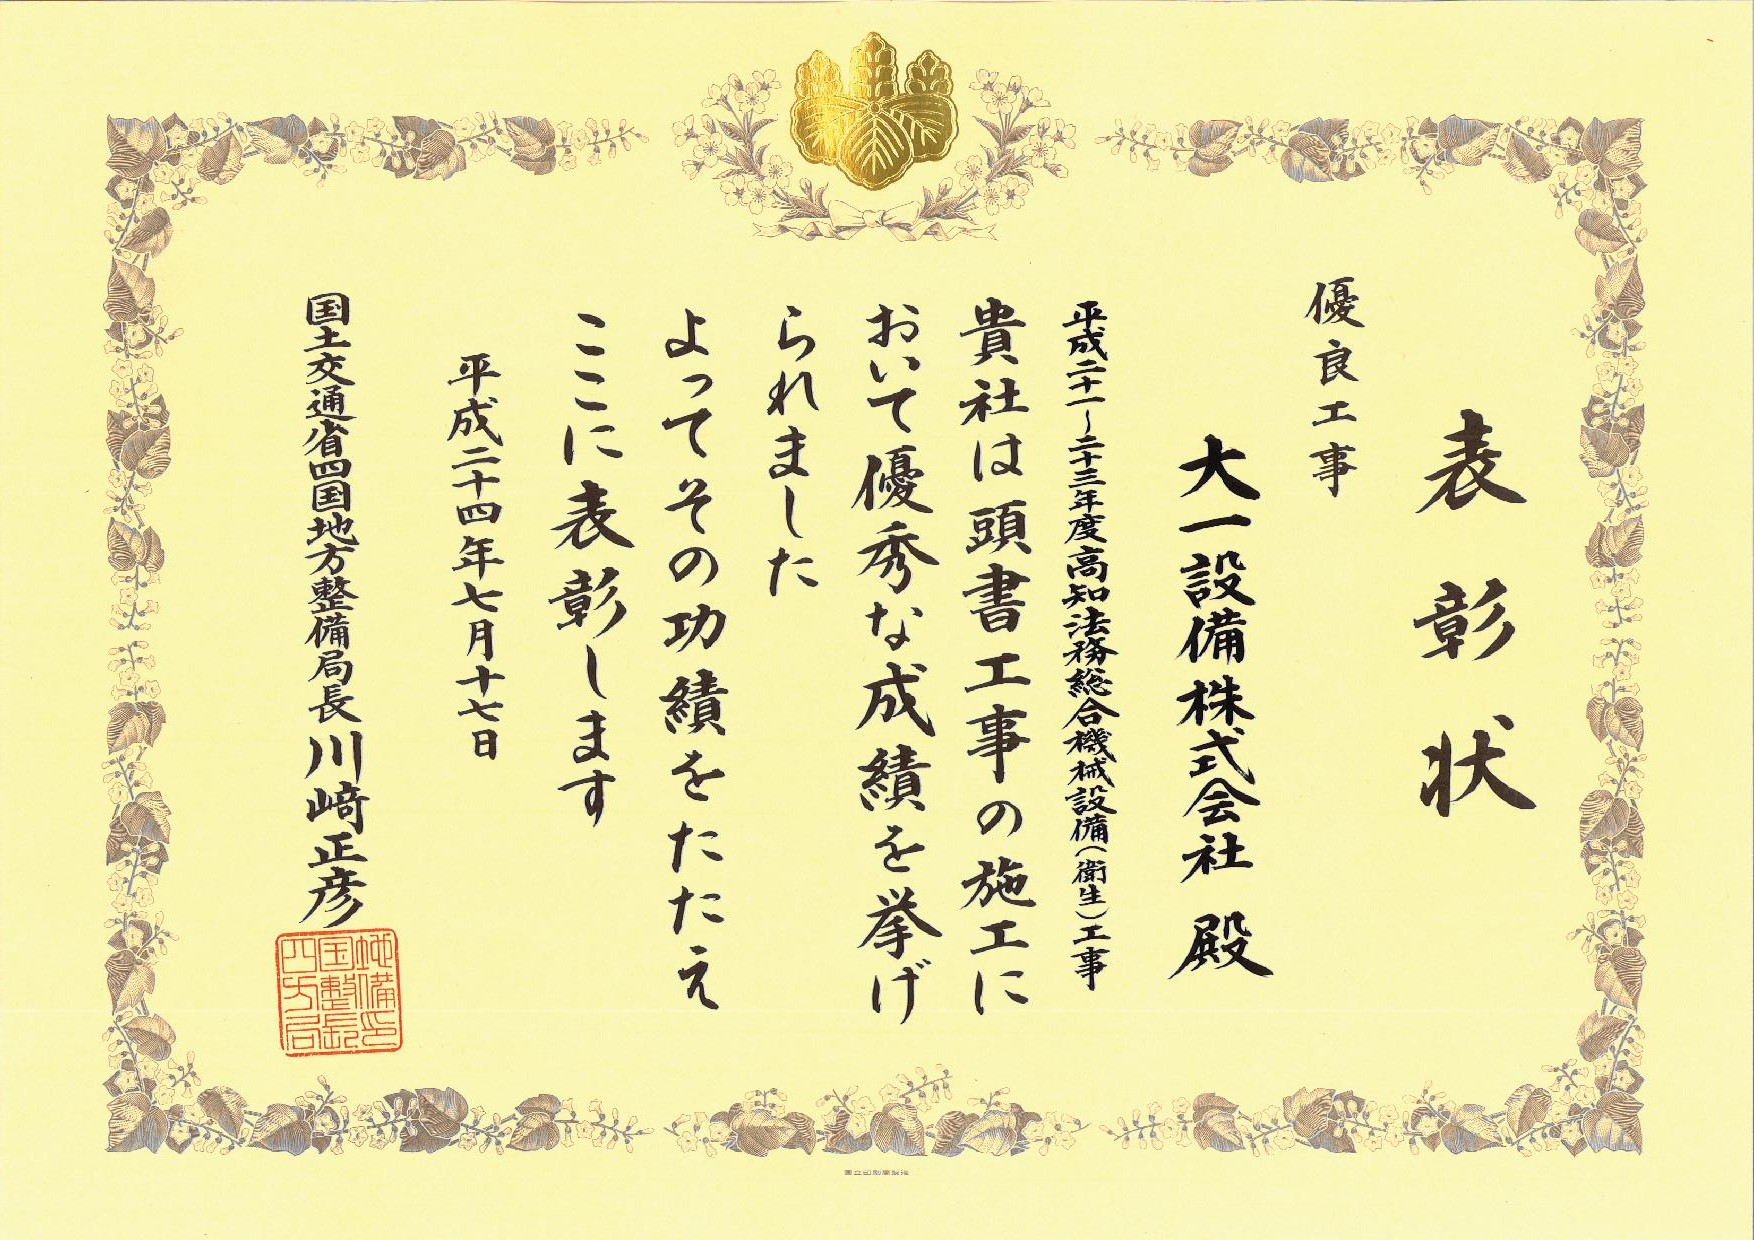 表彰状
優良工事
大一設備株式会社 殿
平成二十一~二十三年度高知法務総合機械設備(衛生)工事
貴社は頭書工事の施工に
おいて優秀な成績を挙げ
られました
よってその功績をたたえ
ここに表彰します
平成二十四年七月十七日
国土交通省四国地方整備局長 川﨑正彦
四国地方整備局長印
国立印刷局製造